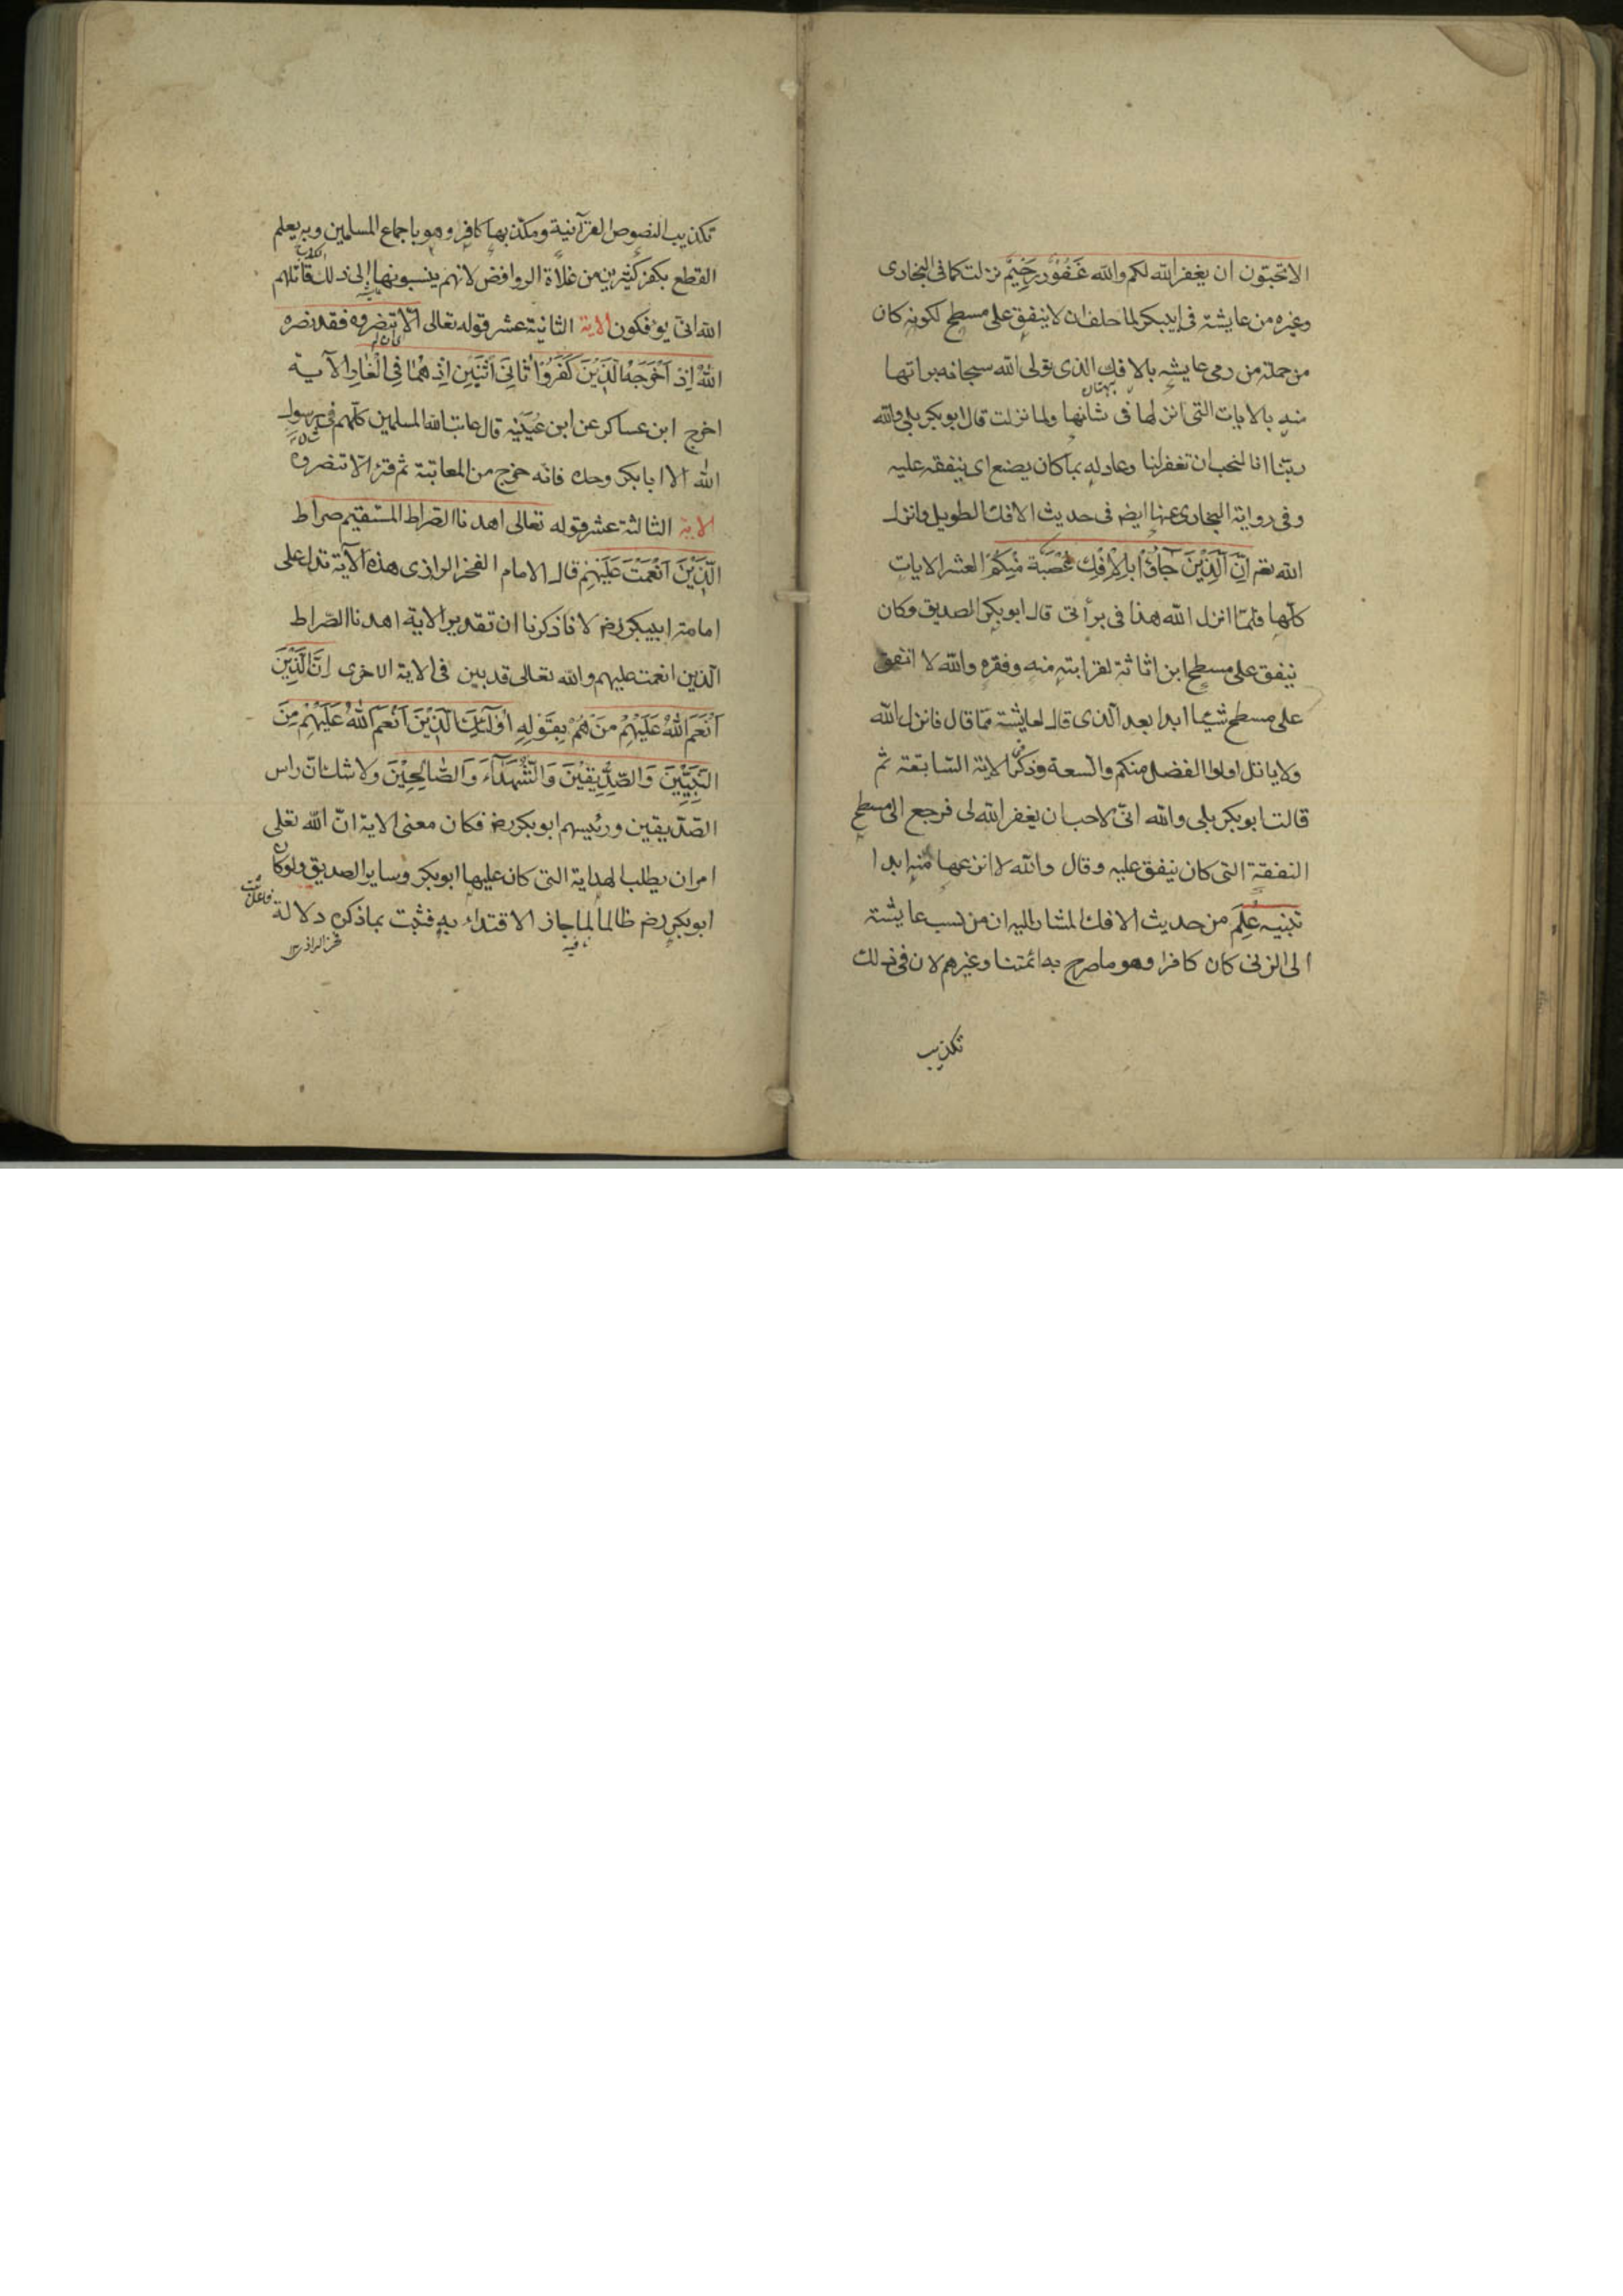 الا تحبون ان يغفر الله لكم والله غَفُوْرٌ رَحِيْمٌ نزلت كما فى البخارى
وغيره من عايشة فى ابيبكر لما حلف ان لا ينفق على مسطح لكونه كان
من جملة من رمى عايشه بالافك الذى تولى الله سبحانه براتها
بهتان
منه بالايات التى انزلها فى شانها ولما نزلت قال ابو بكر بلى والله
ربّنا انا لنحب ان تغفر لنا وعاد له بما كان يصنع اى ينفقه عليه
وفى رواية البخارى عنها ايض فى حديث الافك الطويل وانزل
الله تعم اِنَّ الَّذِيْنَ جَاؤُا بِالْاِفْكِ عُصْبَة مِّنْكُمْ العشر الايات
كلّها فلمّا انزل الله هذا فى برأتى قال ابو بكر الصديق وكان
ينفق على مسطح ابن اثاثة لقرابته منه وفقره والله لا انفق
على مسطح شيئا ابدا بعد الذى قال لعايشة ممّا قال فانزل الله
ولا ياتل اولوا الفضل منكم والسعة وذكر الاية السّابقة ثم
قالت ابو بكر بلى والله انّى لاحب ان يغفر الله لى فرجع الى مسطح
النفقة التى كان ينفق عليه وقال والله لا انزعها منه ابدا
تنبيه عُلِمَ من حديث الافك المشار اليه ان من نسب عايشة
الى الزنى كان كافرا وهو ما صرح به ائمتنا وغيرهم لان فى ذلك
تكذيب
تكذيب النصوص القرآنية ومكذبها كافر وهو باجماع المسلمين وبه يعلم
القطع بكفر كثيرين من غلاة الروافض لانهم ينسبونها الى ذلك قاتلهم
الله انى يوفكون الاية الثانية عشر قوله تعالى الّا تنصروه فقد نصره
اللهُ اِذْ اَخْرَجَهُ الَّذِيْنَ كَفَرُوْا ثَانِىَ اثْنَيْنِ اِذْ هُمَا فِى الْغَارِ الآية
اخرج ابن عساكر عن ابن عُيَيْنَه قال عاتب الله المسلمين كلّهم فى رسول
الله الا ابا بكر وحده فانّه خرج من المعاتبة ثم قرء الّا تنصروه
الاية الثالثة عشر قوله تعالى اهدنا الصّراط المستقيم صراط
الَّذِيْنَ اَنْعَمْتَ عَلَيْهِمْ قال الامام الفخر الرازى هذه الآية تدل على
امامة ابيبكر رض لانا ذكرنا ان تقدير الاية اهدنا الصّراط
الّذين انعمت عليهم والله تعالى قد بين فى الاية الاخرى اِنَّ الَّذِيْنَ
اَنْعَمَ اللهُ عَلَيْهِمْ مَنْ هُمْ بِقَوْلِهِ اُولٰئِكَ الَّذِيْنَ اَنْعَمَ اللهُ عَلَيْهِمْ مِنَ
النَّبِيّيْنَ وَالصِّدِّيْقِيْنَ وَالشُّهَدَآءِ وَالصَّالِحِيْنَ ولا شك انّ راس
الصّدّيقين ورئيسهم ابو بكر رض فكان معنى الاية انّ الله تعلى
امر ان يطلب الهداية التى كان عليها ابو بكر وساير الصديق ولو كان
ابو بكر رض ظالما لما جاز الاقتداء به فثبت بما ذكر دلالة
فخر الرازى